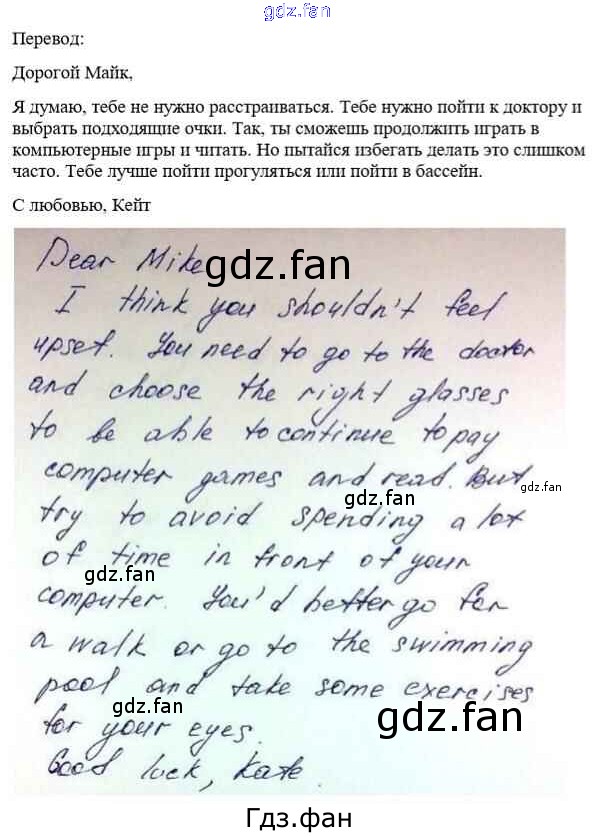 gdz.fan
Перевод:
Дорогой Майк,
Я думаю, тебе не нужно расстраиваться. Тебе нужно пойти к доктору и
выбрать подходящие очки. Так, ты сможешь продолжить играть в
компьютерные игры и читать. Но пытайся избегать делать это слишком
часто. Тебе лучше пойти прогуляться или пойти в бассейн.
С любовью, Кейт
Dear Mike gdz.fan
I think you shouldn't feel
upset. You need to go to the doctor
and choose the right glasses
to be able to continue to pay
computer games and read. But
gdz.fan
gdz.fan
try to avoid spending a lot
of time in front of your
gdz.fan
computer. You'd better go for
a walk or go to the swimming
pool and take some exercises
gdz.fan
gdz.fan
for your eyes.
Good luck, Kate.
Гдз.фан